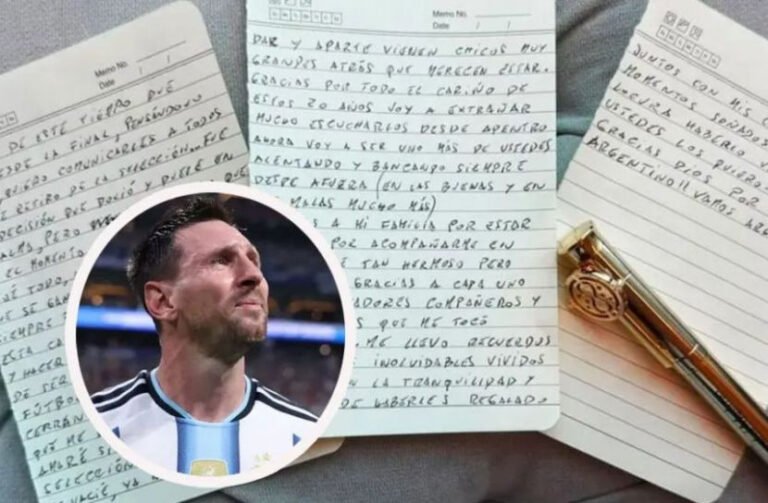 Memo No.
Date / /
DE ESTE TIEMPO QUE
LA FINAL, PENSÁNDOLO
QUIERO COMUNICARLES A TODOS
RETIRO DE LA SELECCIÓN. FUE
DECISIÓN QUE DOLIÓ Y DUELE EN
ALMA, PERO
EL MOMENTO
TODO,
QUE SE
SIEMPRE
ESTA
Y HACER
DE SER
FÚTBO
CERRAN
QUE ME
AMARÉ
SELECCIÓN
YA
Memo No.
Date / /
DAR Y APARTE VIENEN CHICOS MUY
GRANDES ATRÁS QUE MERECEN ESTAR.
GRACIAS POR TODO EL CARIÑO DE
ESTOS 20 AÑOS VOY A EXTRAÑAR
MUCHO ESCUCHARLOS DESDE ADENTRO
AHORA VOY A SER UNO MÁS DE USTEDES
ALENTANDO Y BANCANDO SIEMPRE
DESDE AFUERA (EN LAS BUENAS Y EN
MALAS MUCHO MÁS)
A MI FAMILIA POR ESTAR
POR ACOMPAÑARME EN
TAN HERMOSO PERO
GRACIAS A CADA UNO
ADORES COMPAÑEROS Y
S QUE ME TOCÓ
ME LLEVO RECUERDOS
INOLVIDABLES VIVIDOS
LA TRANQUILIDAD Y
DE HABERLES REGALADO
JUNTOS CON MIS C
MOMENTOS SOÑADOS
LOCURA HABERLO
USTEDES LOS QUIERO
GRACIAS DIOS POR
ARGENTINO!! VAMOS AR